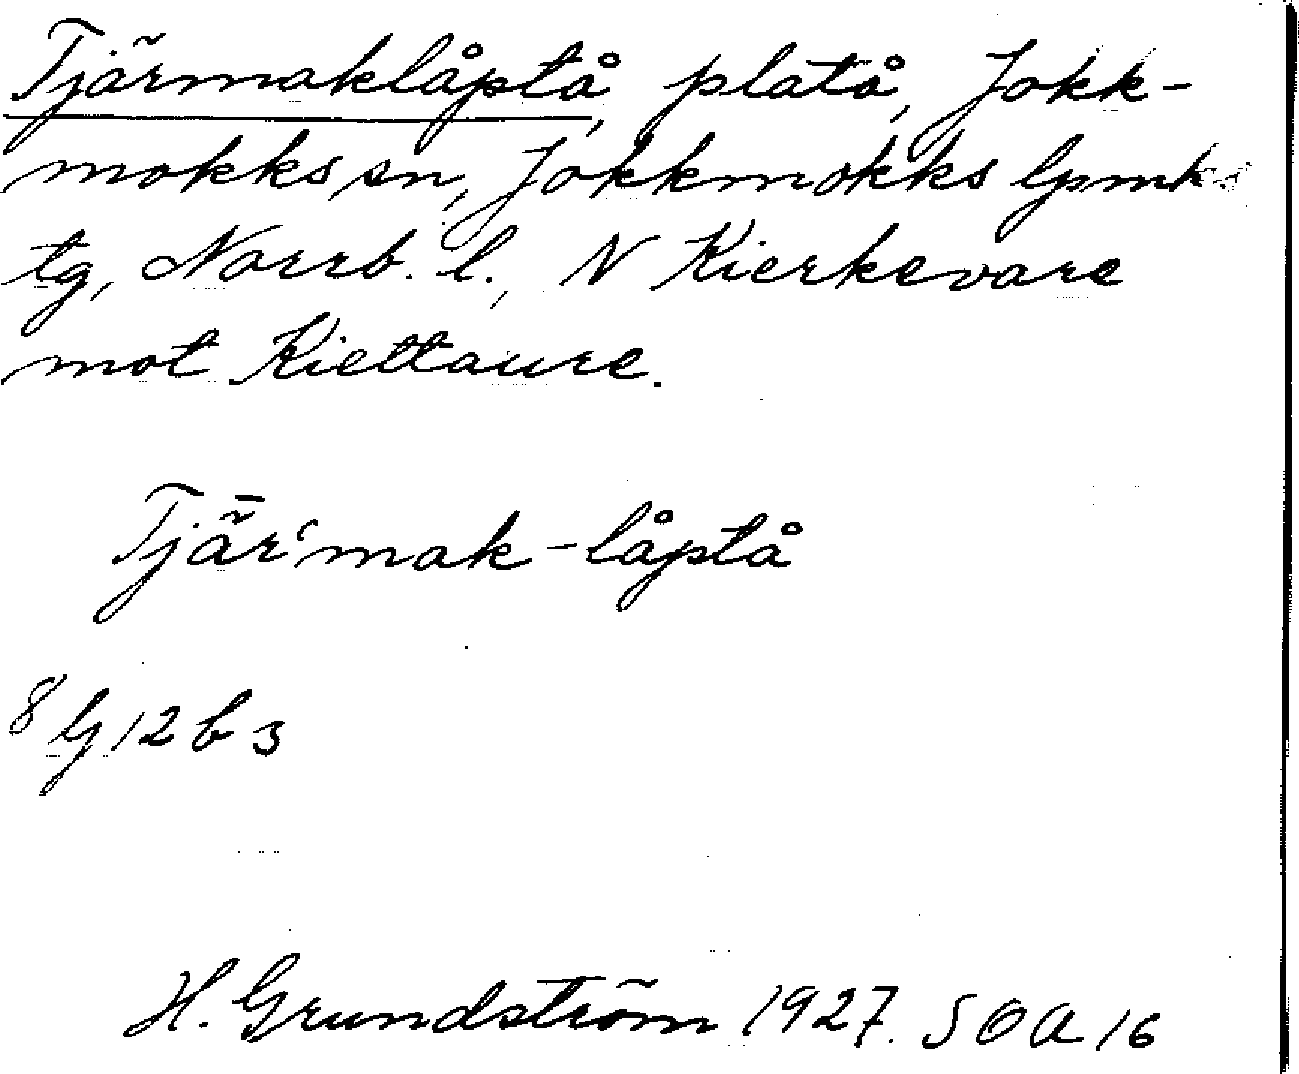 Tjärmaklåptå, platå, Jokk-
mokks sn, Jokkmokks lpmks
tg, Norrb. l., N Kierkevare
mot Kiettaure.
Tjǟr'mak-låptå
8 G 12 b 3
H. Grundström 1927. SOA 16